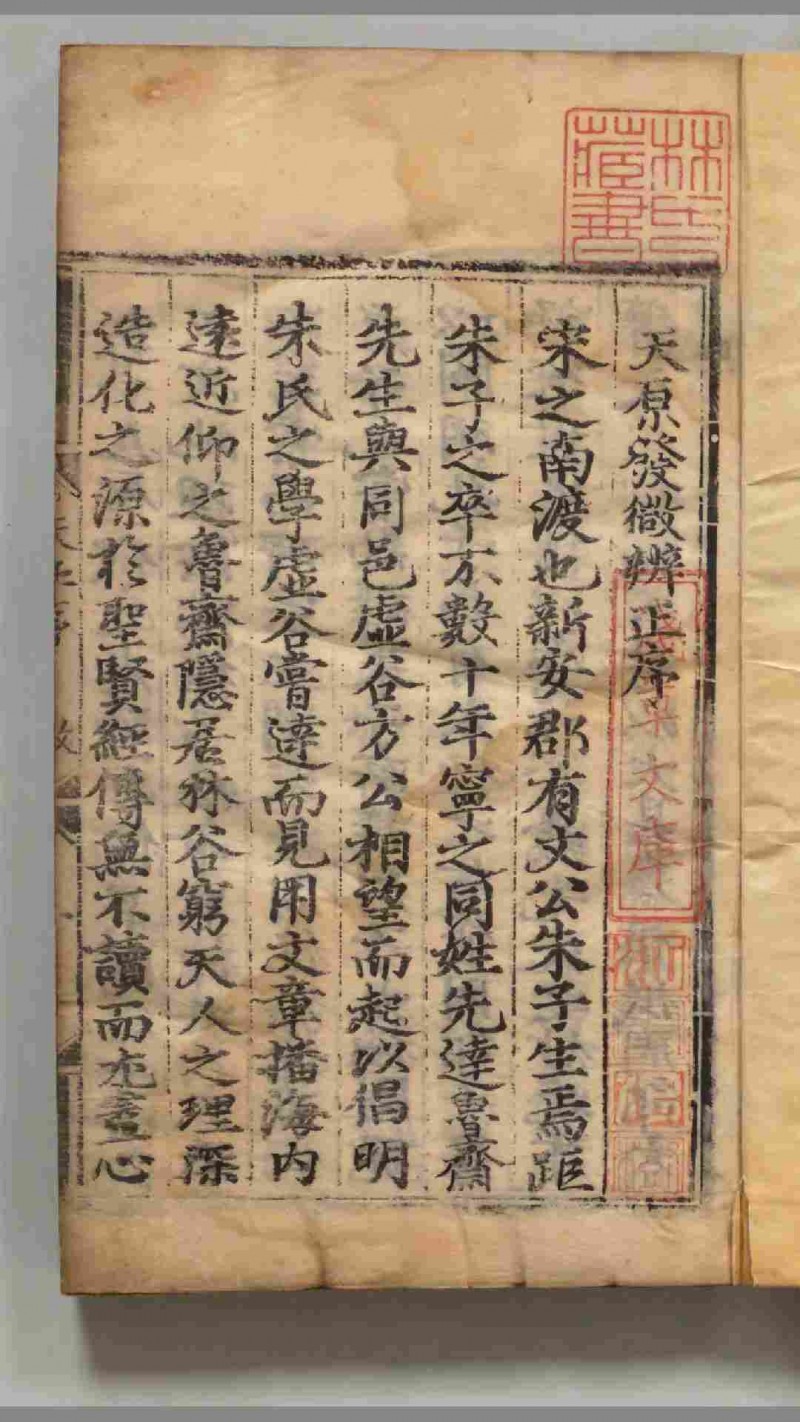 天原發微辨正序
宋之南渡也新安郡有文公朱子生焉距
朱子之卒不數十年寧之同姓先達魯齋
先生與同邑虛谷方公相望而起以倡明
朱氏之學虛谷嘗達而見用文章播海內
遠近仰之魯齋隱居林谷窮天人之理深
造化之源於聖賢經傳無不讀而尤盡心
林氏
藏書
文庫